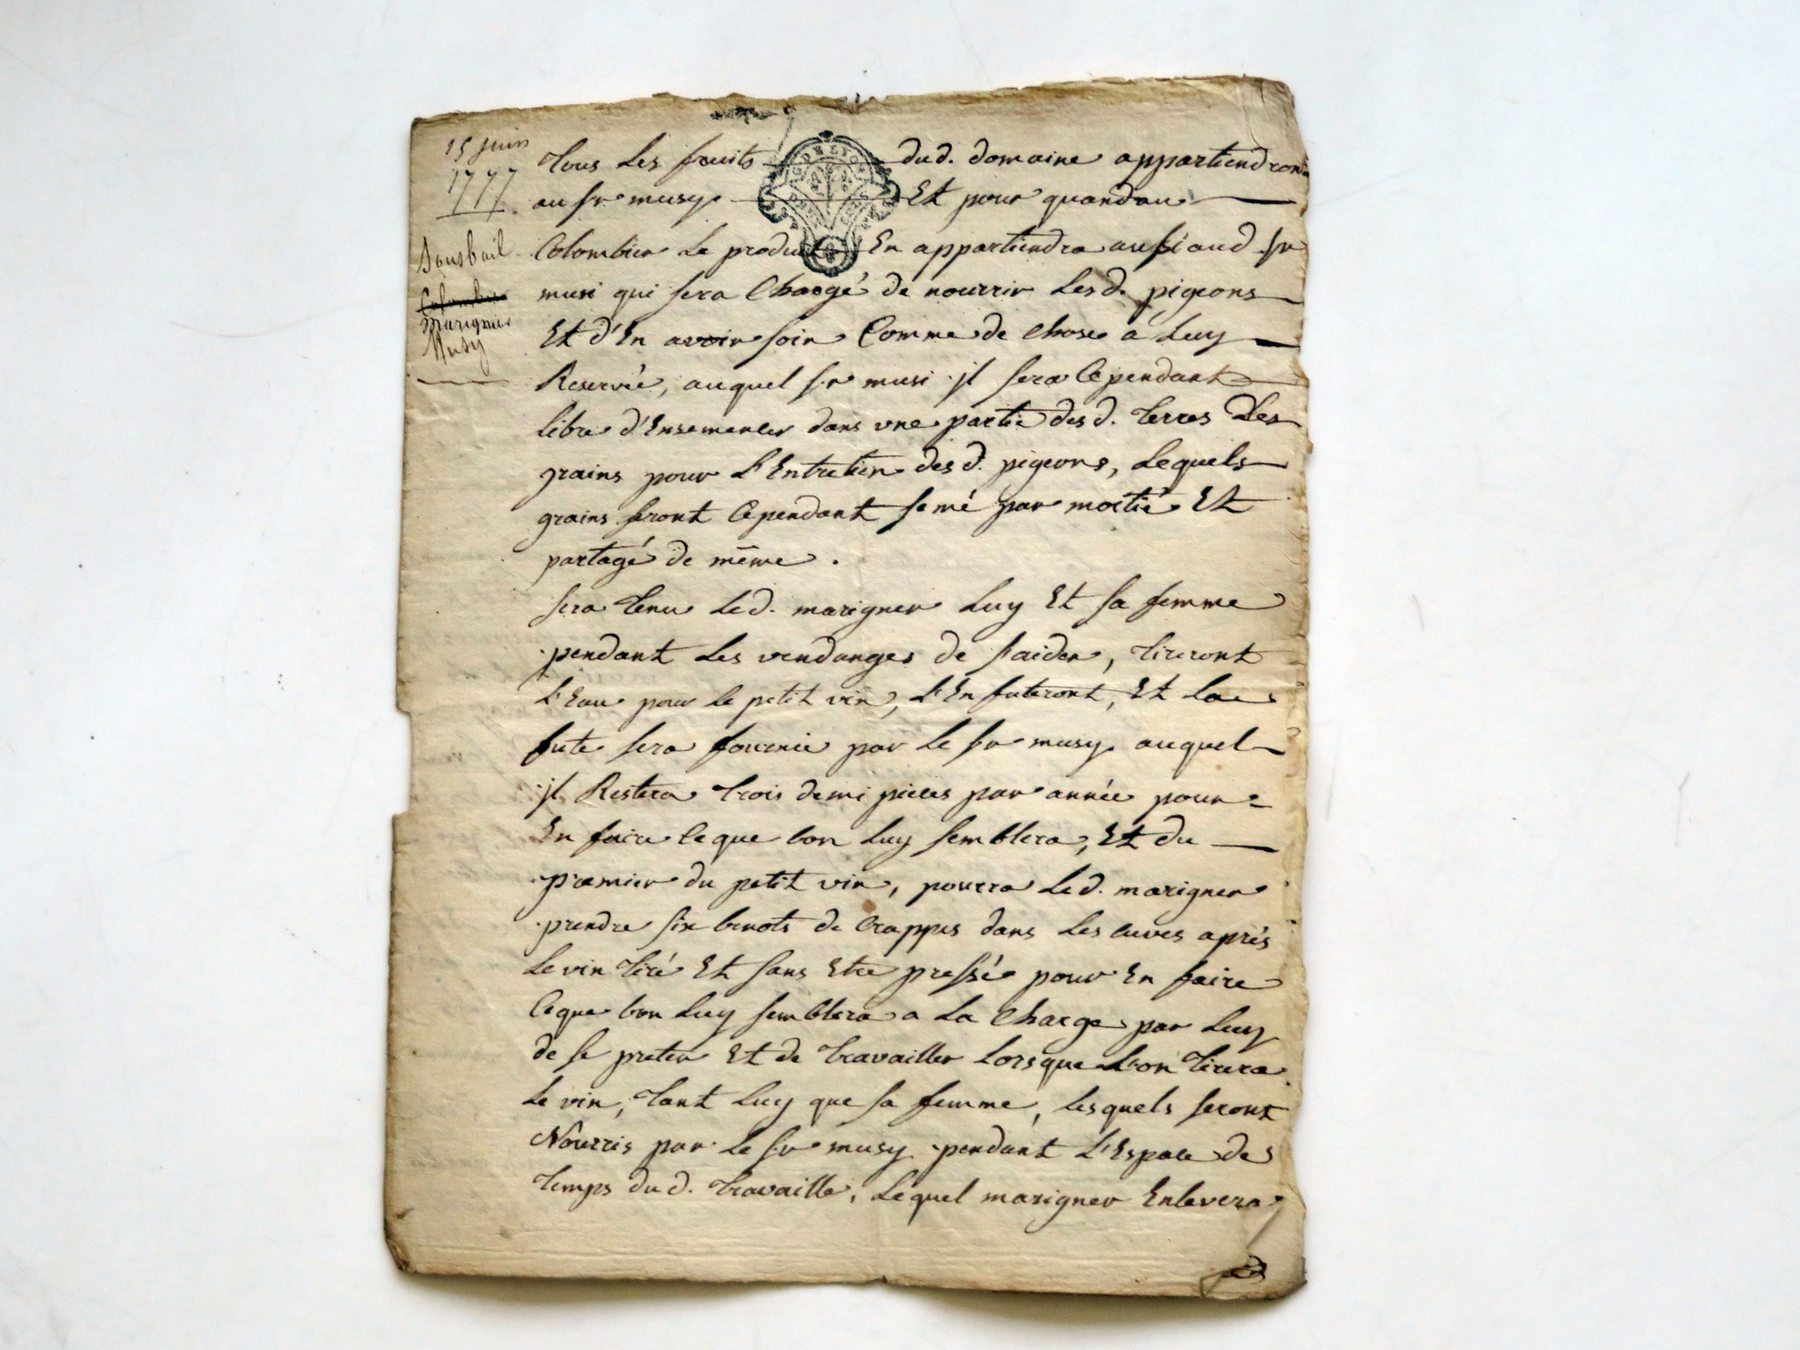 15 juin
1777
Sousbail
Marigner
Musy
G. DE LYON
Tous Les fruits dud. domaine appartiendront
au sr musy Et pour quandau
Colombier Le produit En appartiendra aussi aud sr
musi qui sera Chargé de nourrir Lesd. pigeons
Et d'En avoir soin Comme de chose a Luy
Reservée, auquel sr musi jl sera Cependant
libre d'Ensemencer dans vne partie desd. Terres Les
grains pour L'Entretien desd. pigeons, Lequels
grains seront Cependant semé par moitié Et
partagé de même.
sera Tenu Led. marigner Luy Et sa femme
pendant Les vendanges de s'aider, Tireront
L'Eau pour Le petit vin, L'En futeront, Et La
fute sera fournie par Le sr musy auquel
jl Restera Trois demi pieces par année pour
En faire Ce que bon Luy semblera, Et du
premier du petit vin, pourra Led. marigner
prendre six benots de Crappes dans Les cuves aprés
Le vin Tiré Et sans Etre pressée pour En faire
Ceque bon Luy semblera a La Charge par Luy
de se preter Et de Travailler Lorsque L'on Tirera
Le vin, Tant Luy que sa femme, Lesquels seront
Nourris par Le sr musy pendant L'Espace de
Temps dud. Travaille, Lequel marigner Enlevera